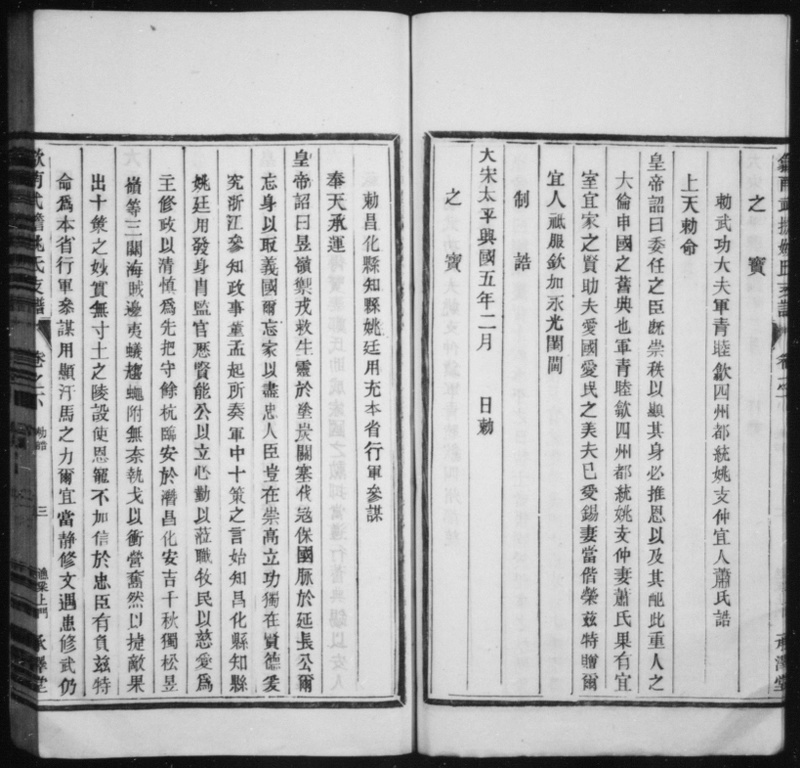 之寶
勅武功大夫軍青睦歙四州都統姚支仲宜人蕭氏誥
上天勅命
皇帝詔曰委任之臣旣崇秩以顯其身必推恩以及其配此重人之
大倫申國之舊典也軍青睦歙四州都統姚支仲妻蕭氏果有宜
室宜家之賢助夫愛國愛民之美夫已愛錫妻當偕榮茲特贈爾
宜人祗服欽加永光閨閫
制誥
大宋太平興國五年二月 日勅
之寶
勅昌化縣知縣姚廷用充本省行軍參謀
奉天承運
皇帝詔曰昱嶺禦戎救生靈於塗炭關塞伐寇保國脈於延長公爾
忘身以取義國爾忘家以盡忠人臣豈在崇高立功獨在賢德爰
究浙江參知政事董孟起所奏軍中十策之言始知昌化縣知縣
姚廷用發身肖監官歷賢能公以立心勤以蒞職牧民以慈愛爲
主修政以清慎爲先把守餘杭臨安於潛昌化安吉千秋獨松昱
嶺等三關海賊邊夷蟻趨蠅附無奈執戈以衝營奮然以捷敵果
出十策之妙實無寸土之陵設使恩寵不加信於忠臣有負茲特
命爲本省行軍參謀用顯汗馬之力爾宜當靜修文遇患修武仍
姚氏支譜 卷之六 勅誥 三 漁梁上門 承澤堂